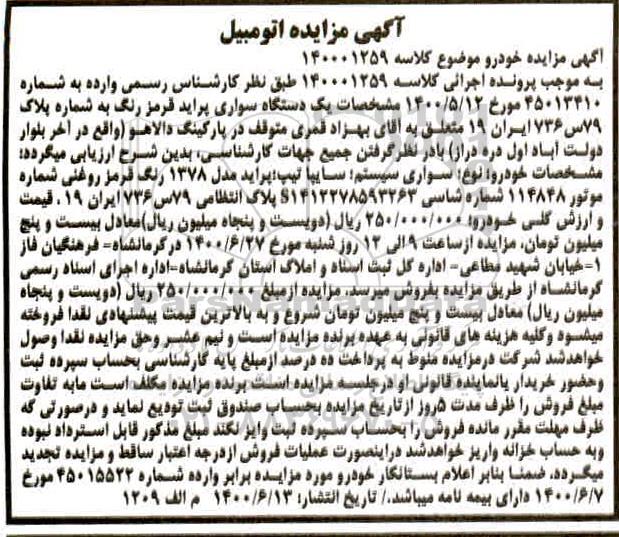 آگهی مزایده اتومبیل
آگهی مزایده خودرو موضوع کلاسه ۱۴۰۰۰۱۲۵۹
به موجب پرونده اجرائی کلاسه ۱۴۰۰۰۱۲۵۹ طبق نظر کارشناس رسمی وارده به شماره
۴۵۰۱۳۴۱۰ مورخ ۱۴۰۰/۵/۱۲ مشخصات یک دستگاه سواری پراید قرمز رنگ به شماره پلاک
۷۹س۷۳۶ایران ۱۹ متعلق به آقای بهزاد قمری متوقف در پارکینگ دالاهو (واقع در آخر بلوار
دولت آباد اول دره دراز) بادر نظر گرفتن جمیع جهات کارشناسی، بدین شرح ارزیابی میگردد:
مشخصات خودرو: نوع سواری سیستم: سایپا تیپ:پراید مدل ۱۳۷۸ رنگ قرمز روغنی شماره
موتور ۱۱۴۸۴۸ شماره شاسی S۱۴۱۲۲۷۸۵۹۳۲۶۳ پلاک انتظامی ۷۹س۷۳۶ایران ۱۹ . قیمت
و ارزش کلی خودرو: ۲۵۰/۰۰۰/۰۰۰ ریال (دویست و پنجاه میلیون ریال)معادل بیست و پنج
میلیون تومان، مزایده ازساعت ۹ الی ۱۲ روز شنبه مورخ ۱۴۰۰/۶/۲۷ درکرمانشاه- فرهنگیان فاز
۱-خیابان شهید مطاعی- اداره کل ثبت اسناد و املاک استان کرمانشاه-اداره اجرای اسناد رسمی
کرمانشاه از طریق مزایده بفروش میرسد. مزایده ازمبلغ ۲۵۰/۰۰۰/۰۰۰ ریال (دویست و پنجاه
میلیون ریال) معادل بیست و پنج میلیون تومان شروع و به بالاترین قیمت پیشنهادی نقدا فروخته
میشود وکلیه هزینه های قانونی به عهده برنده مزایده است و نیم عشر وحق مزایده نقدا وصول
خواهدشد شرکت درمزایده منوط به پرداخت ده درصد ازمبلغ پایه کارشناسی بحساب سپرده ثبت
وحضور خریدار یانماینده قانونی او درجلسه مزایده است برنده مزایده مکلف است مابه تفاوت
مبلغ فروش را ظرف مدت ۵روز ازتاریخ مزایده بحساب صندوق ثبت تودیع نماید و درصورتی که
ظرف مهلت مقرر مانده فروش را بحساب سپرده ثبت واریز نکند مبلغ مذکور قابل استرداد نبوده
وبه حساب خزانه واریز خواهدشد دراینصورت عملیات فروش ازدرجه اعتبار ساقط و مزایده تجدید
میگردد. ضمنا بنابر اعلام بستانکار خودرو مورد مزایده برابر وارده شماره ۴۵۰۱۵۵۲۲ مورخ
۱۴۰۰/۶/۷ دارای بیمه نامه میباشد./ تاریخ انتشار: ۱۴۰۰/۶/۱۳ م الف ۱۲۰۹